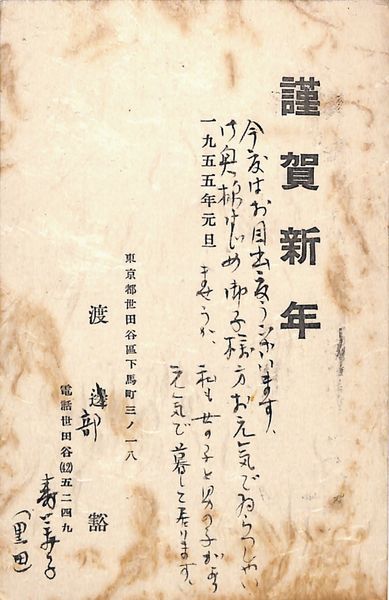 謹賀新年
今度はお目出度うございます、
御奥様はじめ御子様方お元気でゐらっしゃい
一九五五年元旦
ますうか、私も女の子と男の子があり
元気で暮して居ります、
東京都世田谷區下馬町三ノ一八
渡邊 豁
部
電話世田谷(42)五二四九
子
(黒田)